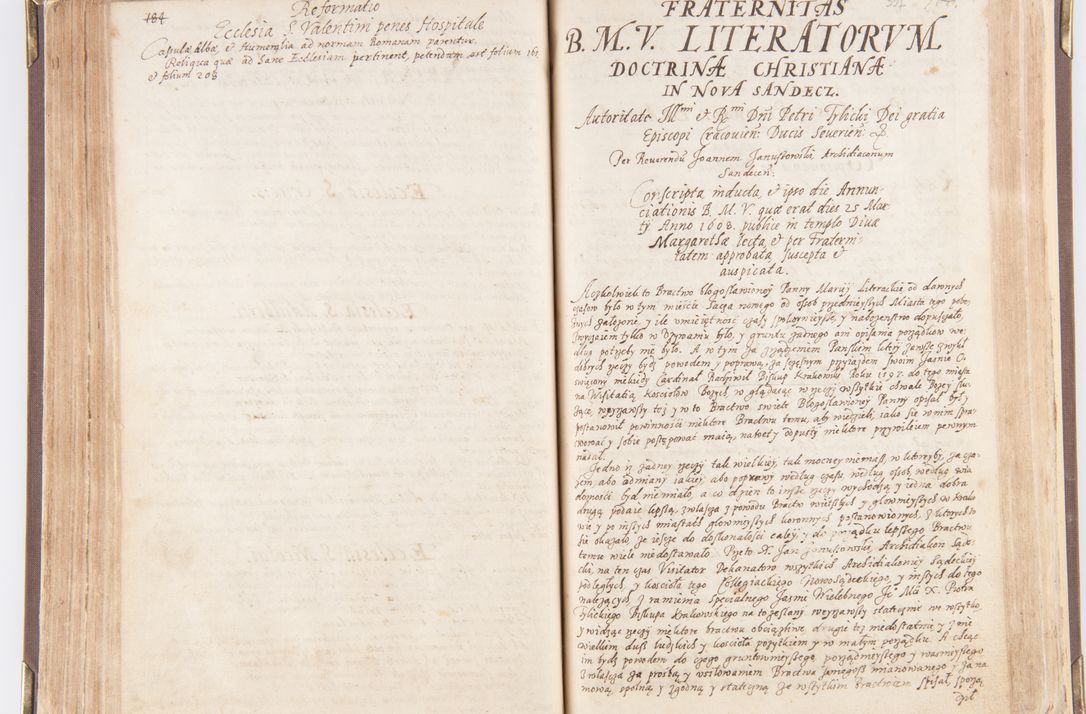 184
Reformatio
Ecclesia S. Valentini penes Hospitale
Casulæ Albæ, et Humeralia ad normam Romanam parentur.
Reliqua quæ ad hanc Ecclesiam pertinent, petendum est folium 165
et folium 208
FRATERNITAS
B. M. V. LITERATORVM
DOCTRINÆ CHRISTIANÆ
IN NOVA SANDECZ.
Autoritate Illmi et Rmi Dni Petri Tylicki Dei gratia
Episcopi Cracovien: Ducis Severien:
Per Reverendu Joannem Januszowski Archidiaconum
Sandecen:
Conscripta inducta, et ipso die Annun-
ciationis B. M. V. quæ erat dies 25 Mar
tij Anno 1608. publice in templo Divæ
Margarethæ lecta, et per Fraterni-
tatem approbata, suscepta et
auspicata.
Aczkolwiek to Bractwo błogosławioney Panny Mariey Literackie, od dawnych
czasow było w tym mieście Sącza nowego od osob przednieyszych Miasta tego pobo-
żnych założone, y ile umieiętność czasy spokoynieysze, y nabożeństwo dopuszczało,
zwyczaiem tylko w używaniu było, y gruntu żadnego ani opisania porządkow we-
dług potrzeby nie było. A w tym za zrządzeniem Pańskiem ktory zawsze zwykł
dobrych rzeczy bydź powodem y poprawą, za szczęsnym przyiazdem swoim Jaśnie O
świecony niekiedy Cardinał Radziwił Biskup Krakowski Roku 1597. do tego miasta
na Wisitatią Kościołow Bożych, w glądaiąc w rzeczy wszytkie chwale Bożey słu-
żące, weyzrawszy tez y w to Bractwo święte Błogosławioney Panny opisał był y
postanowił powinności niektore Bractwu temu, aby wiedzieli, iako się w nim spra-
wować y sobie postępować maią, nawet y odpusty niektore przywileiem pewnym
nadał.
Jedno iż żadney rzeczy tak wielkiey, tak mocney niemasz, w ktoreyby, za cza-
sem, abo odmiany iakiey, abo poprawy według czasu, według osob, według wia
domości być niemiało, a co dzien to insze rzeczy wychodzą y iedna dobra
drugą podaie lepszą, zwłaszcza z powodu Bractw wielkszych y głownieyszych w Krako
wie y po inszych miastach głownieyszych koronnych postanowionych, z ktorych to
się okazało, że ieszcze do doskonałości całey, y do porządku lepszego Bractwu
temu wiele niedostawało. Przeto X. Jan Januszowski, Archidiakon Sąde-
cki, na ten czas Visitator Dekanatow wszytkich Archidiakoniey Sądeckiey
podległych, y kościoła tego Collegiackiego Nowosądeckiego, y inszych do tego
należących, z ramienia specialnego Jasnie Wielebnego Je° Mci X. Piotra
Tylickiego Biskupa Krakowskiego na to zesłany weyzrawszy statecznie we wszytko,
y widząc rzeczy niektore bractwu obciążliwe drugie tez niedostatnie y z nie
wielkim dusz ludzkich y kościoła pożytkiem y w małym porządku. A chcąc
im bydź powodem do czego gruntownieyszego porządnieyszego y warownieyszego
zwłaszcza za prośbą y usiłowaniem Bractwa pomienionego mianowanego y za na
mową, spolną y zgodną y stateczną ze wszytkim Bractwem spisał, sporzą-